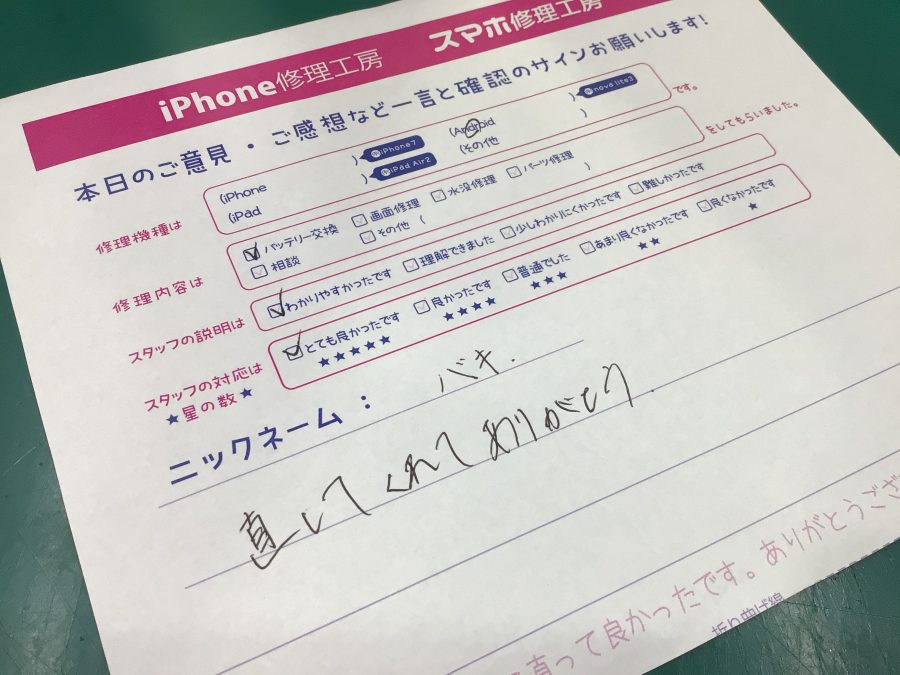 iPhone修理工房 スマホ修理工房
本日のご意見・ご感想など一言と確認のサインお願いします!
修理機種は (iPhone ) iPhone7 (Android ) nova lite3 です。
(iPad ) iPad Air2 (その他 )
修理内容は バッテリー交換 画面修理 水没修理 パーツ修理 をしてもらいました。
相談 その他 ( )
スタッフの説明は わかりやすかったです 理解できました 少しわかりにくかったです 難しかったです
スタッフの対応は とても良かったです 良かったです 普通でした あまり良くなかったです 良くなかったです
★星の数★ ★★★★★ ★★★★ ★★★ ★★ ★
ニックネーム: バキ.
直してくれてありがとう.
直って良かったです。ありがとうござ
折り曲げ線